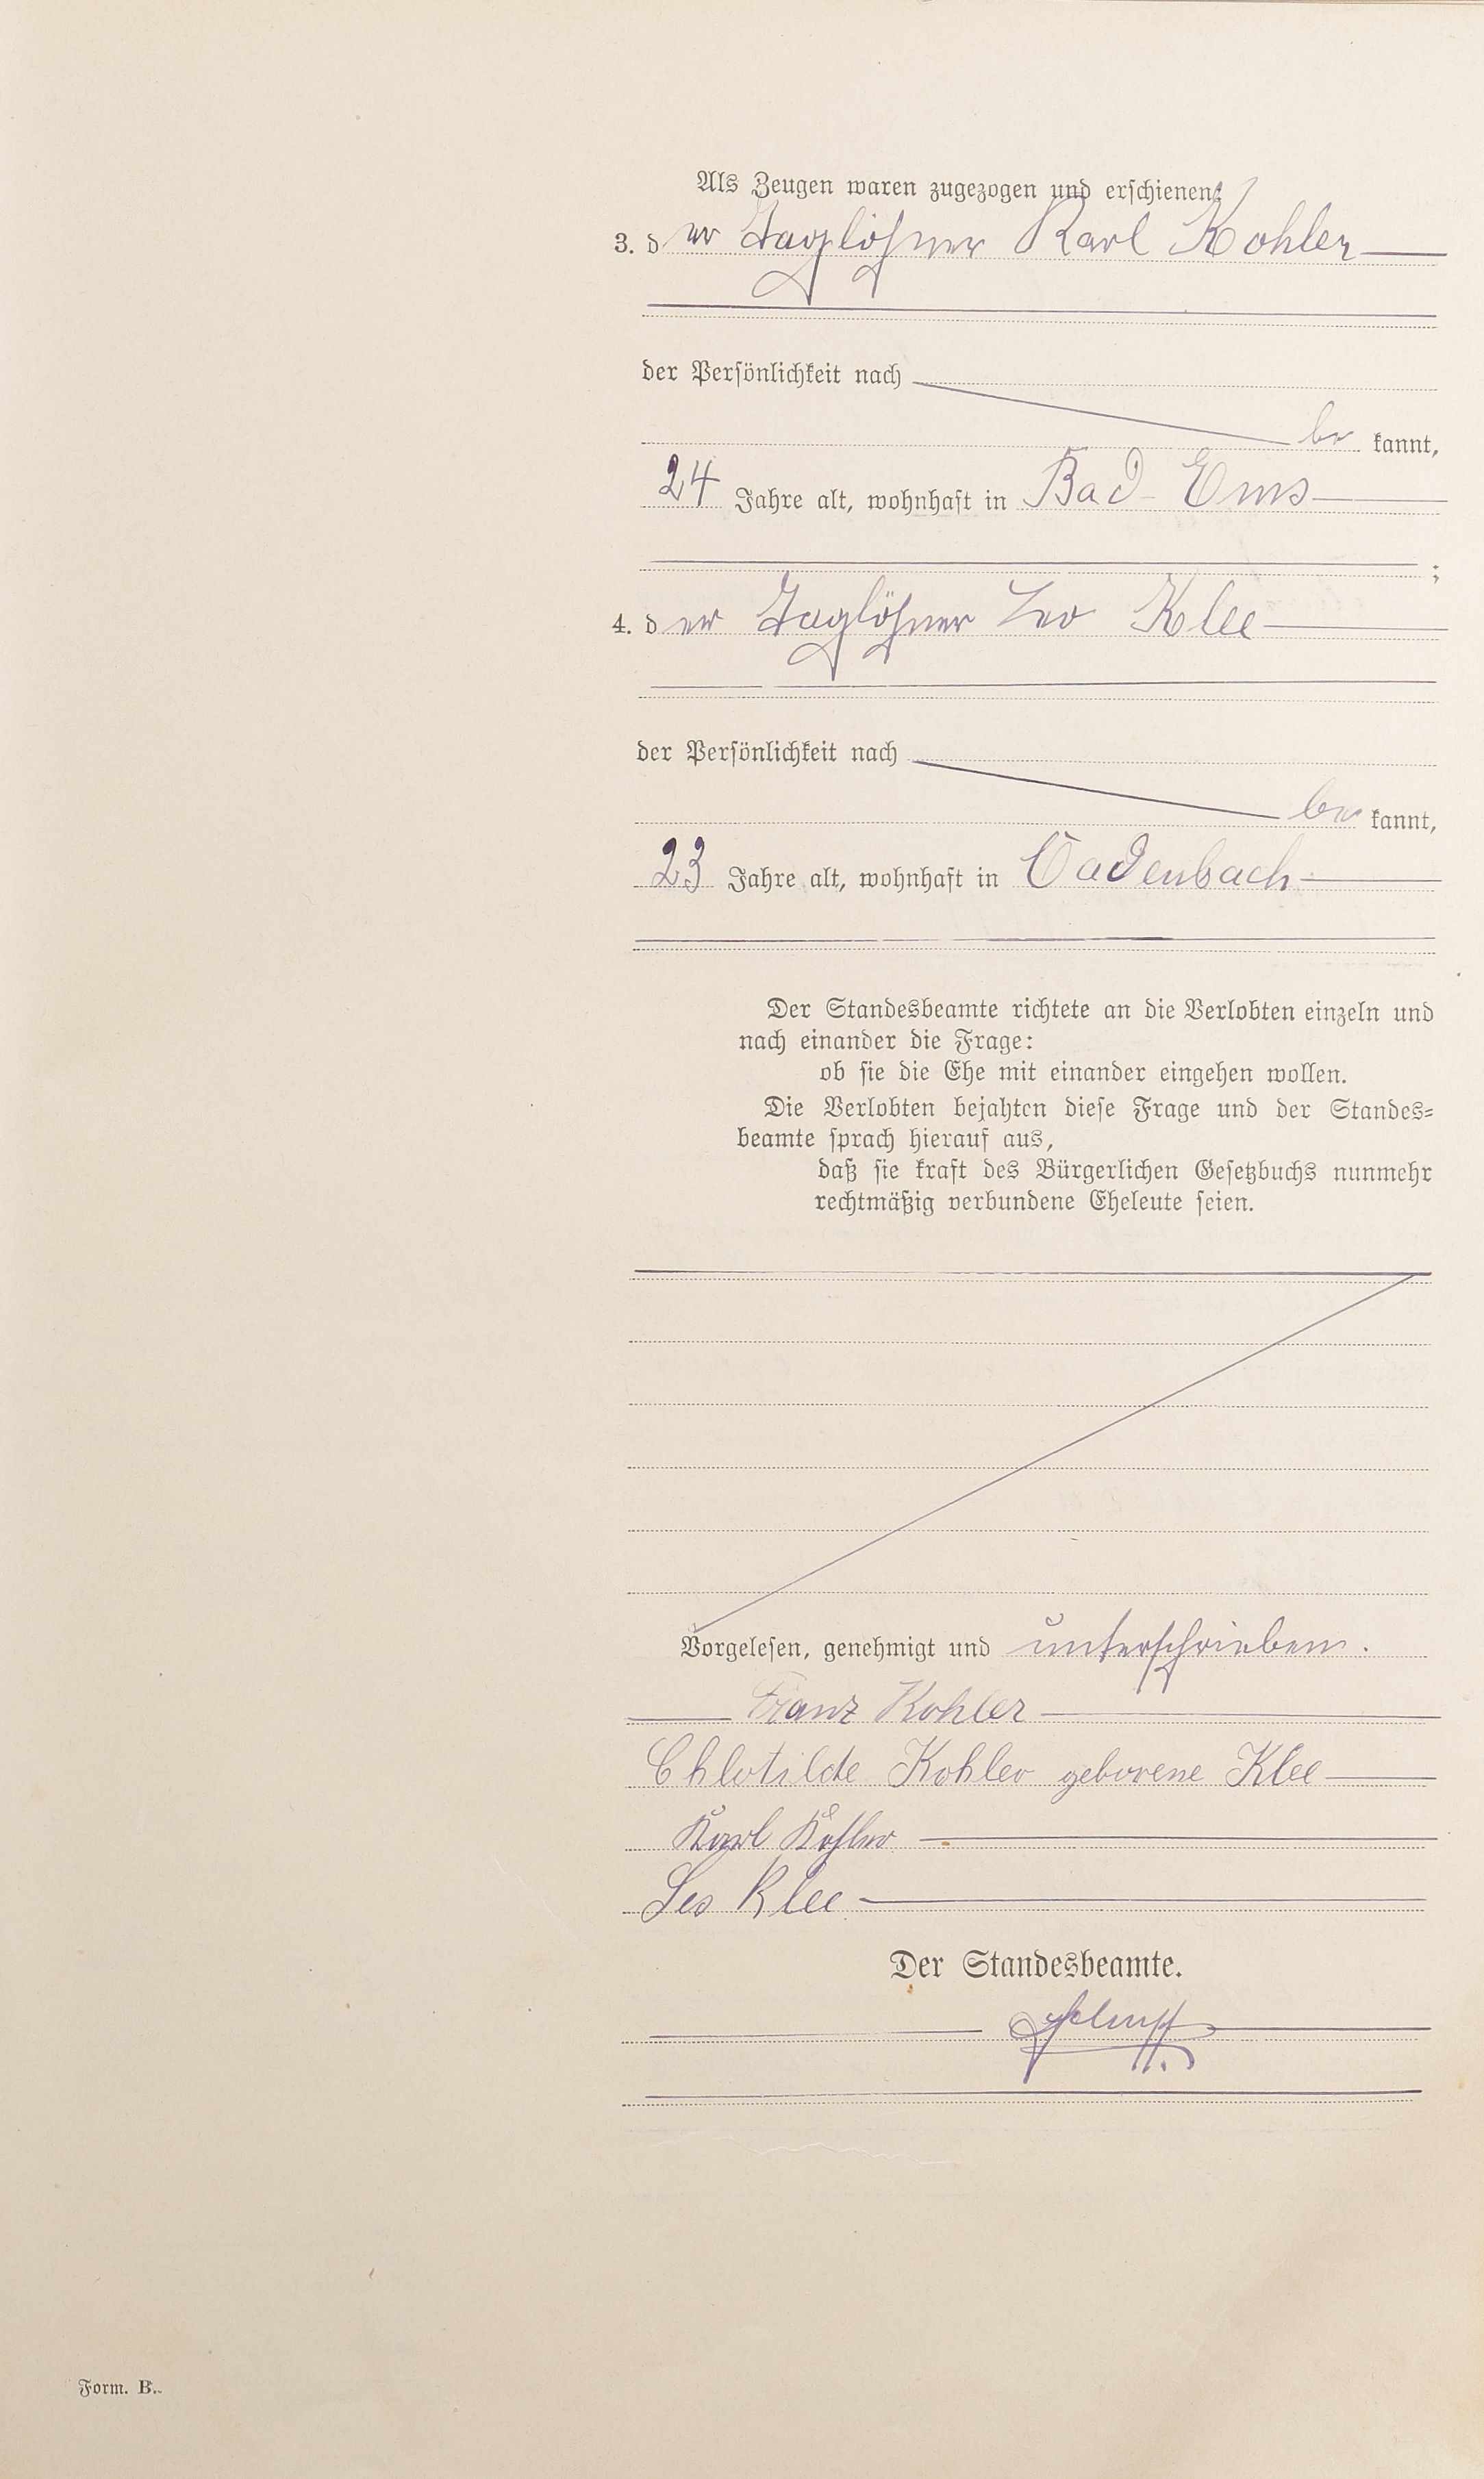 Als Zeugen waren zugezogen und erschienen:
3. der Taglöhner Karl Kohler
der Persönlichkeit nach
be kannt,
24 Jahre alt, wohnhaft in Bad Ems
;
4. der Taglöhner Leo Klee
der Persönlichkeit nach
be kannt,
23 Jahre alt, wohnhaft in Cadenbach
Der Standesbeamte richtete an die Verlobten einzeln und
nach einander die Frage:
ob sie die Ehe mit einander eingehen wollen.
Die Verlobten bejahten diese Frage und der Standes=
beamte sprach hierauf aus,
daß sie kraft des Bürgerlichen Gesetzbuchs nunmehr
rechtmäßig verbundene Eheleute seien.
Vorgelesen, genehmigt und unterschrieben.
Franz Kohler
Chlotilde Kohler geborene Klee
Karl Kohler
Leo Klee
Der Standesbeamte.
Form. B.